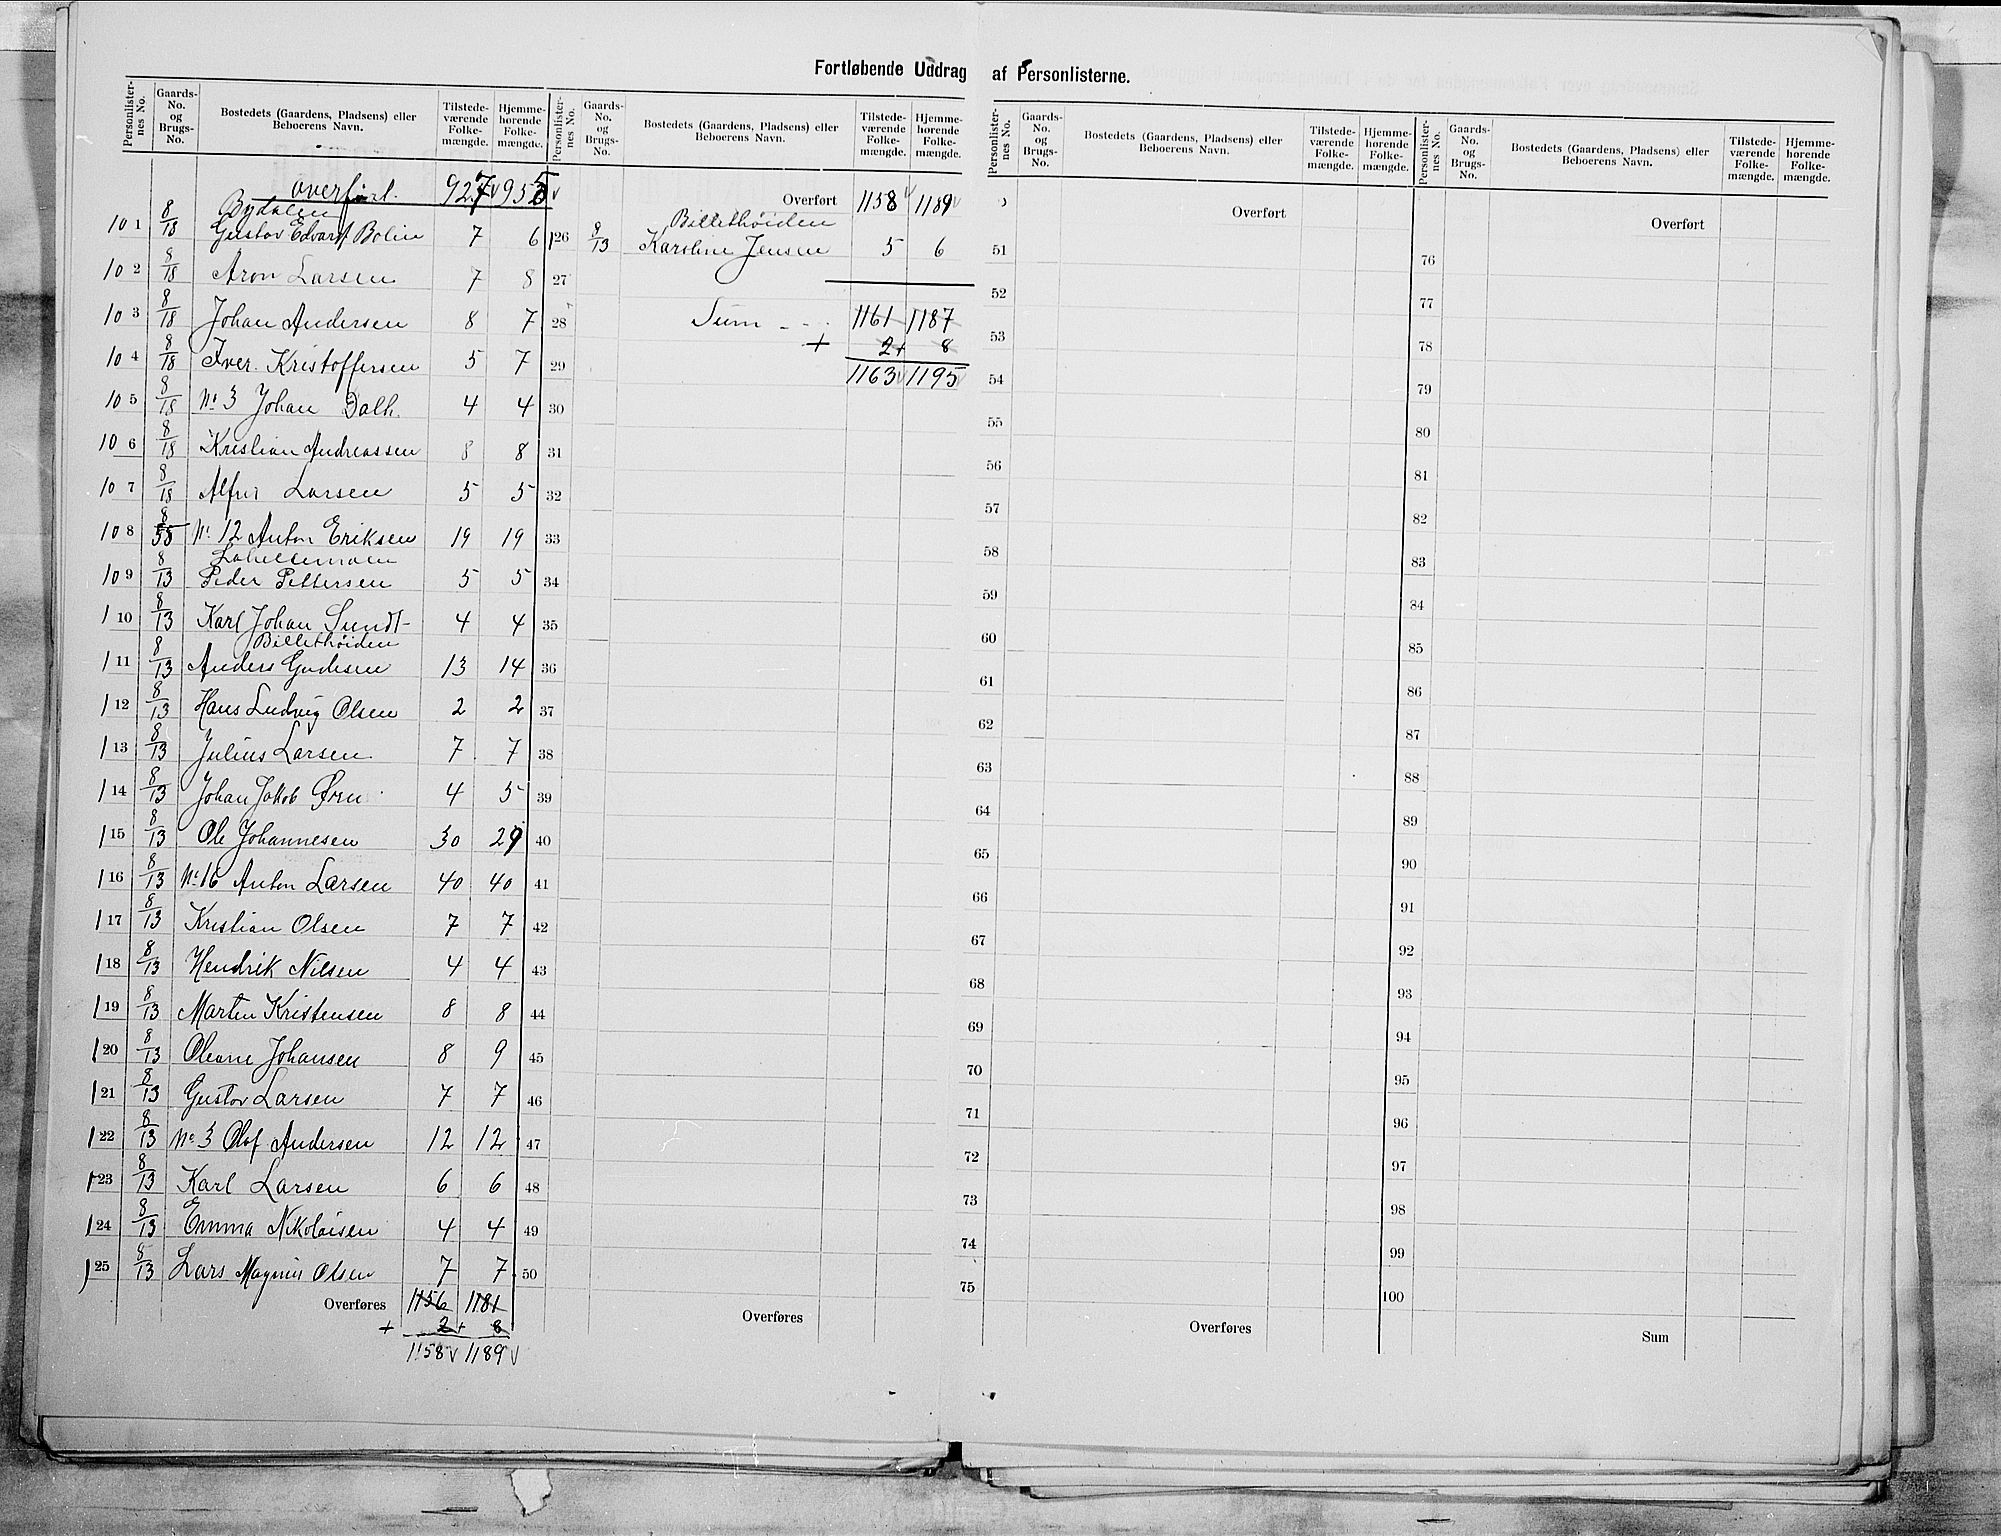 Fortløbende Uddrag af Personlisterne.
Personlister-nes No. Gaards-No. og Brugs-No. Bostedets (Gaardens, Pladsens) eller Beboerens Navn. Tilstede-værende Folke-mængde. Hjemme-hørende Folke-mængde.
overført. 927 955
Bydalen
101 8/18 Gustov Edvart Bolin 7 6
102 8/18 Aron Larsen 7 8
103 8/18 Johan Andersen 8 7
104 8/18 Iver. Kristoffersen 5 7
105 8/18 No 3 Johan Dalh. 4 4
106 8/18 Kristian Andreassen 8 8
107 8/18 Alfred Larsen 5 5
108 8/55 No 12 Anton Eriksen 19 19
Lahellemoen
109 8/13 Peder Pettersen 5 5
110 8/13 Karl Johan Sundt 4 4
Billethøiden
111 8/13 Anders Gudesen 13 14
112 8/13 Hans Ludvig Olsen 2 2
113 8/13 Julius Larsen 7 7
114 8/13 Johan Jakob Ørn 4 5
115 8/13 Ole Johannesen 30 29
116 8/13 No 16 Anton Larsen 40 40
117 8/13 Kristian Olsen 7 7
118 8/13 Hendrik Nilsen 4 4
119 8/13 Martin Kristensen 8 8
120 8/13 Oleane Johansen 8 9
121 8/13 Gustov Larsen 7 7
122 8/13 No 3 Olof Andersen 12 12
123 8/13 Karl Larsen 6 6
124 8/13 Emma Nikolaisen 4 4
125 8/13 Lars Magnus Olsen 7 7
Overføres 1156 1181
+ 2+ 8
1158 1189
Personlister-nes No. Gaards-No. og Brugs-No. Bostedets (Gaardens, Pladsens) eller Beboerens Navn. Tilstede-værende Folke-mængde. Hjemme-hørende Folke-mængde.
Overført 1158 1189
Billethøiden
126 8/13 Karoline Jensen 5 6
27
28 Sum 1161 1187
+ 2+ 8
29 1163 1195
30
31
32
33
34
35
36
37
38
39
40
41
42
43
44
45
46
47
48
49
50
Overføres
Personlister-nes No. Gaards-No. og Brugs-No. Bostedets (Gaardens, Pladsens) eller Beboerens Navn. Tilstede-værende Folke-mængde. Hjemme-hørende Folke-mængde.
Overført
51
52
53
54
55
56
57
58
59
60
61
62
63
64
65
66
67
68
69
70
71
72
73
74
75
Overføres
Personlister-nes No. Gaards-No. og Brugs-No. Bostedets (Gaardens, Pladsens) eller Beboerens Navn. Tilstede-værende Folke-mængde. Hjemme-hørende Folke-mængde.
Overført
76
77
78
79
80
81
82
83
84
85
86
87
88
89
90
91
92
93
94
95
96
97
98
99
100
Sum